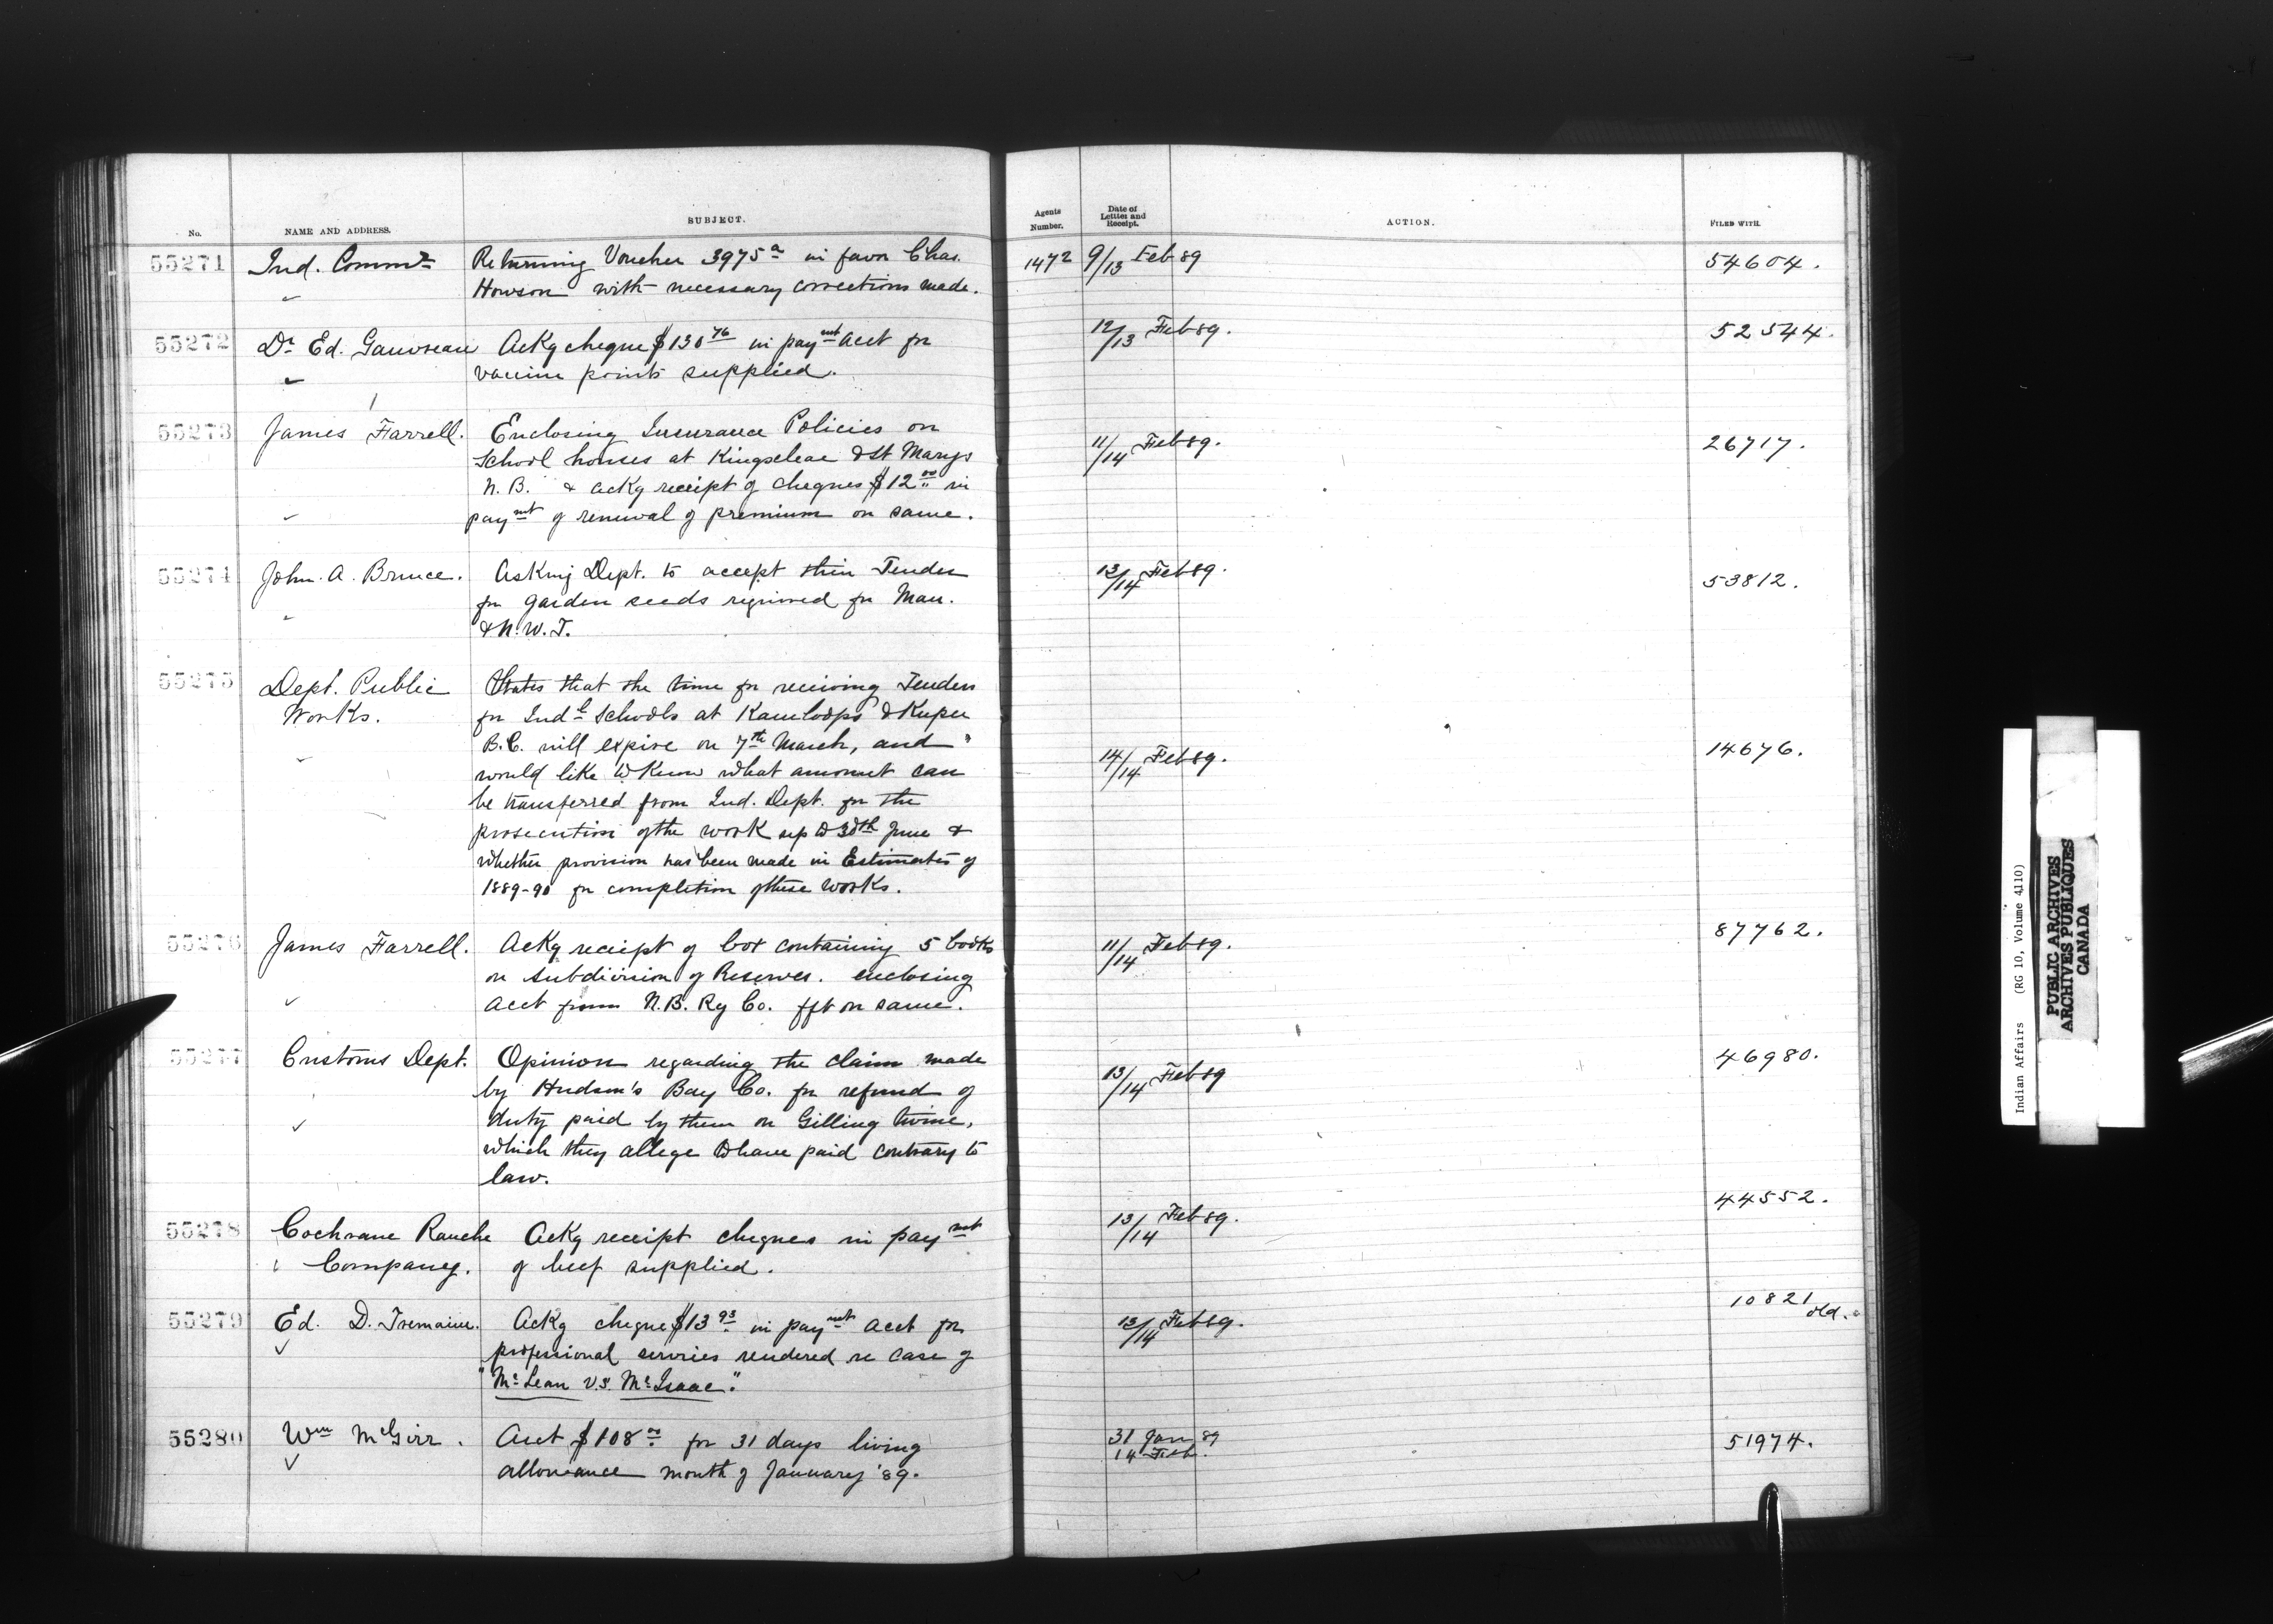 No.
NAME AND ADDRESS.
SUBJECT.
Agents Number.
Date of Letter and Receipt.
ACTION.
FILED WITH.
55271 Ind. Commr Returning Voucher 3975a in favor Chas. 1472 9/13 Feb 89 54604.
Howson with necessary corrections made.
55272 Dr Ed. Gauvreau Ackg cheque $130 76 in paymt acct for 12/13 Feb 89. 52544.
vaccine points supplied.
55273 James Farrell. Enclosing Insurance Policies on 11/14 Feb 89. 26717.
School houses at Kingsclear & St Marys
N.B. & ackg receipt of cheques $12 00 in
paymt of renewal of premium on same.
55274 John. A. Bruce. Asking Dept. to accept their Tender 13/14 Feb 89. 53812.
for garden seeds required for Man.
& N.W.T.
55275 Dept. Public States that the time for receiving Tenders
Works. for Indl Schools at Kamloops & Kuper
B.C. will expire on 7th March, and 14/14 Feb 89. 14676.
would like to know what amount can
be transferred from Ind. Dept. for the
prosecution of the work up to 30th June &
whether provision has been made in Estimates of
1889-90 for completion of these works.
55276 James Farrell. Ackg receipt of box containing 5 books 11/14 Feb 89. 87762.
on subdivision of Reserves. enclosing
acct from N.B. Ry Co. fft on same.
55277 Customs Dept. Opinion regarding the claim made 13/14 Feb 89 46980.
by Hudson's Bay Co. for refund of
duty paid by them on Gilling twine,
which they allege to have paid contrary to
law.
55278 Cochrane Ranche Ackg receipt cheques in paymt 13/14 Feb 89. 44552.
Company. of beef supplied.
55279 Ed. D. Tremaine. Ackg cheque $13 93 in paymt acct for 13/14 Feb 89. 10821 old.
professional services rendered re case of
"McLean vs. McIsaac."
55280 Wm McGirr. Acct $108 00 for 31 days living 31 Jan 89 51974.
allowance month of January '89. 14 Feb.
Indian Affairs (RG 10, Volume 4110)
PUBLIC ARCHIVES
ARCHIVES PUBLIQUES
CANADA